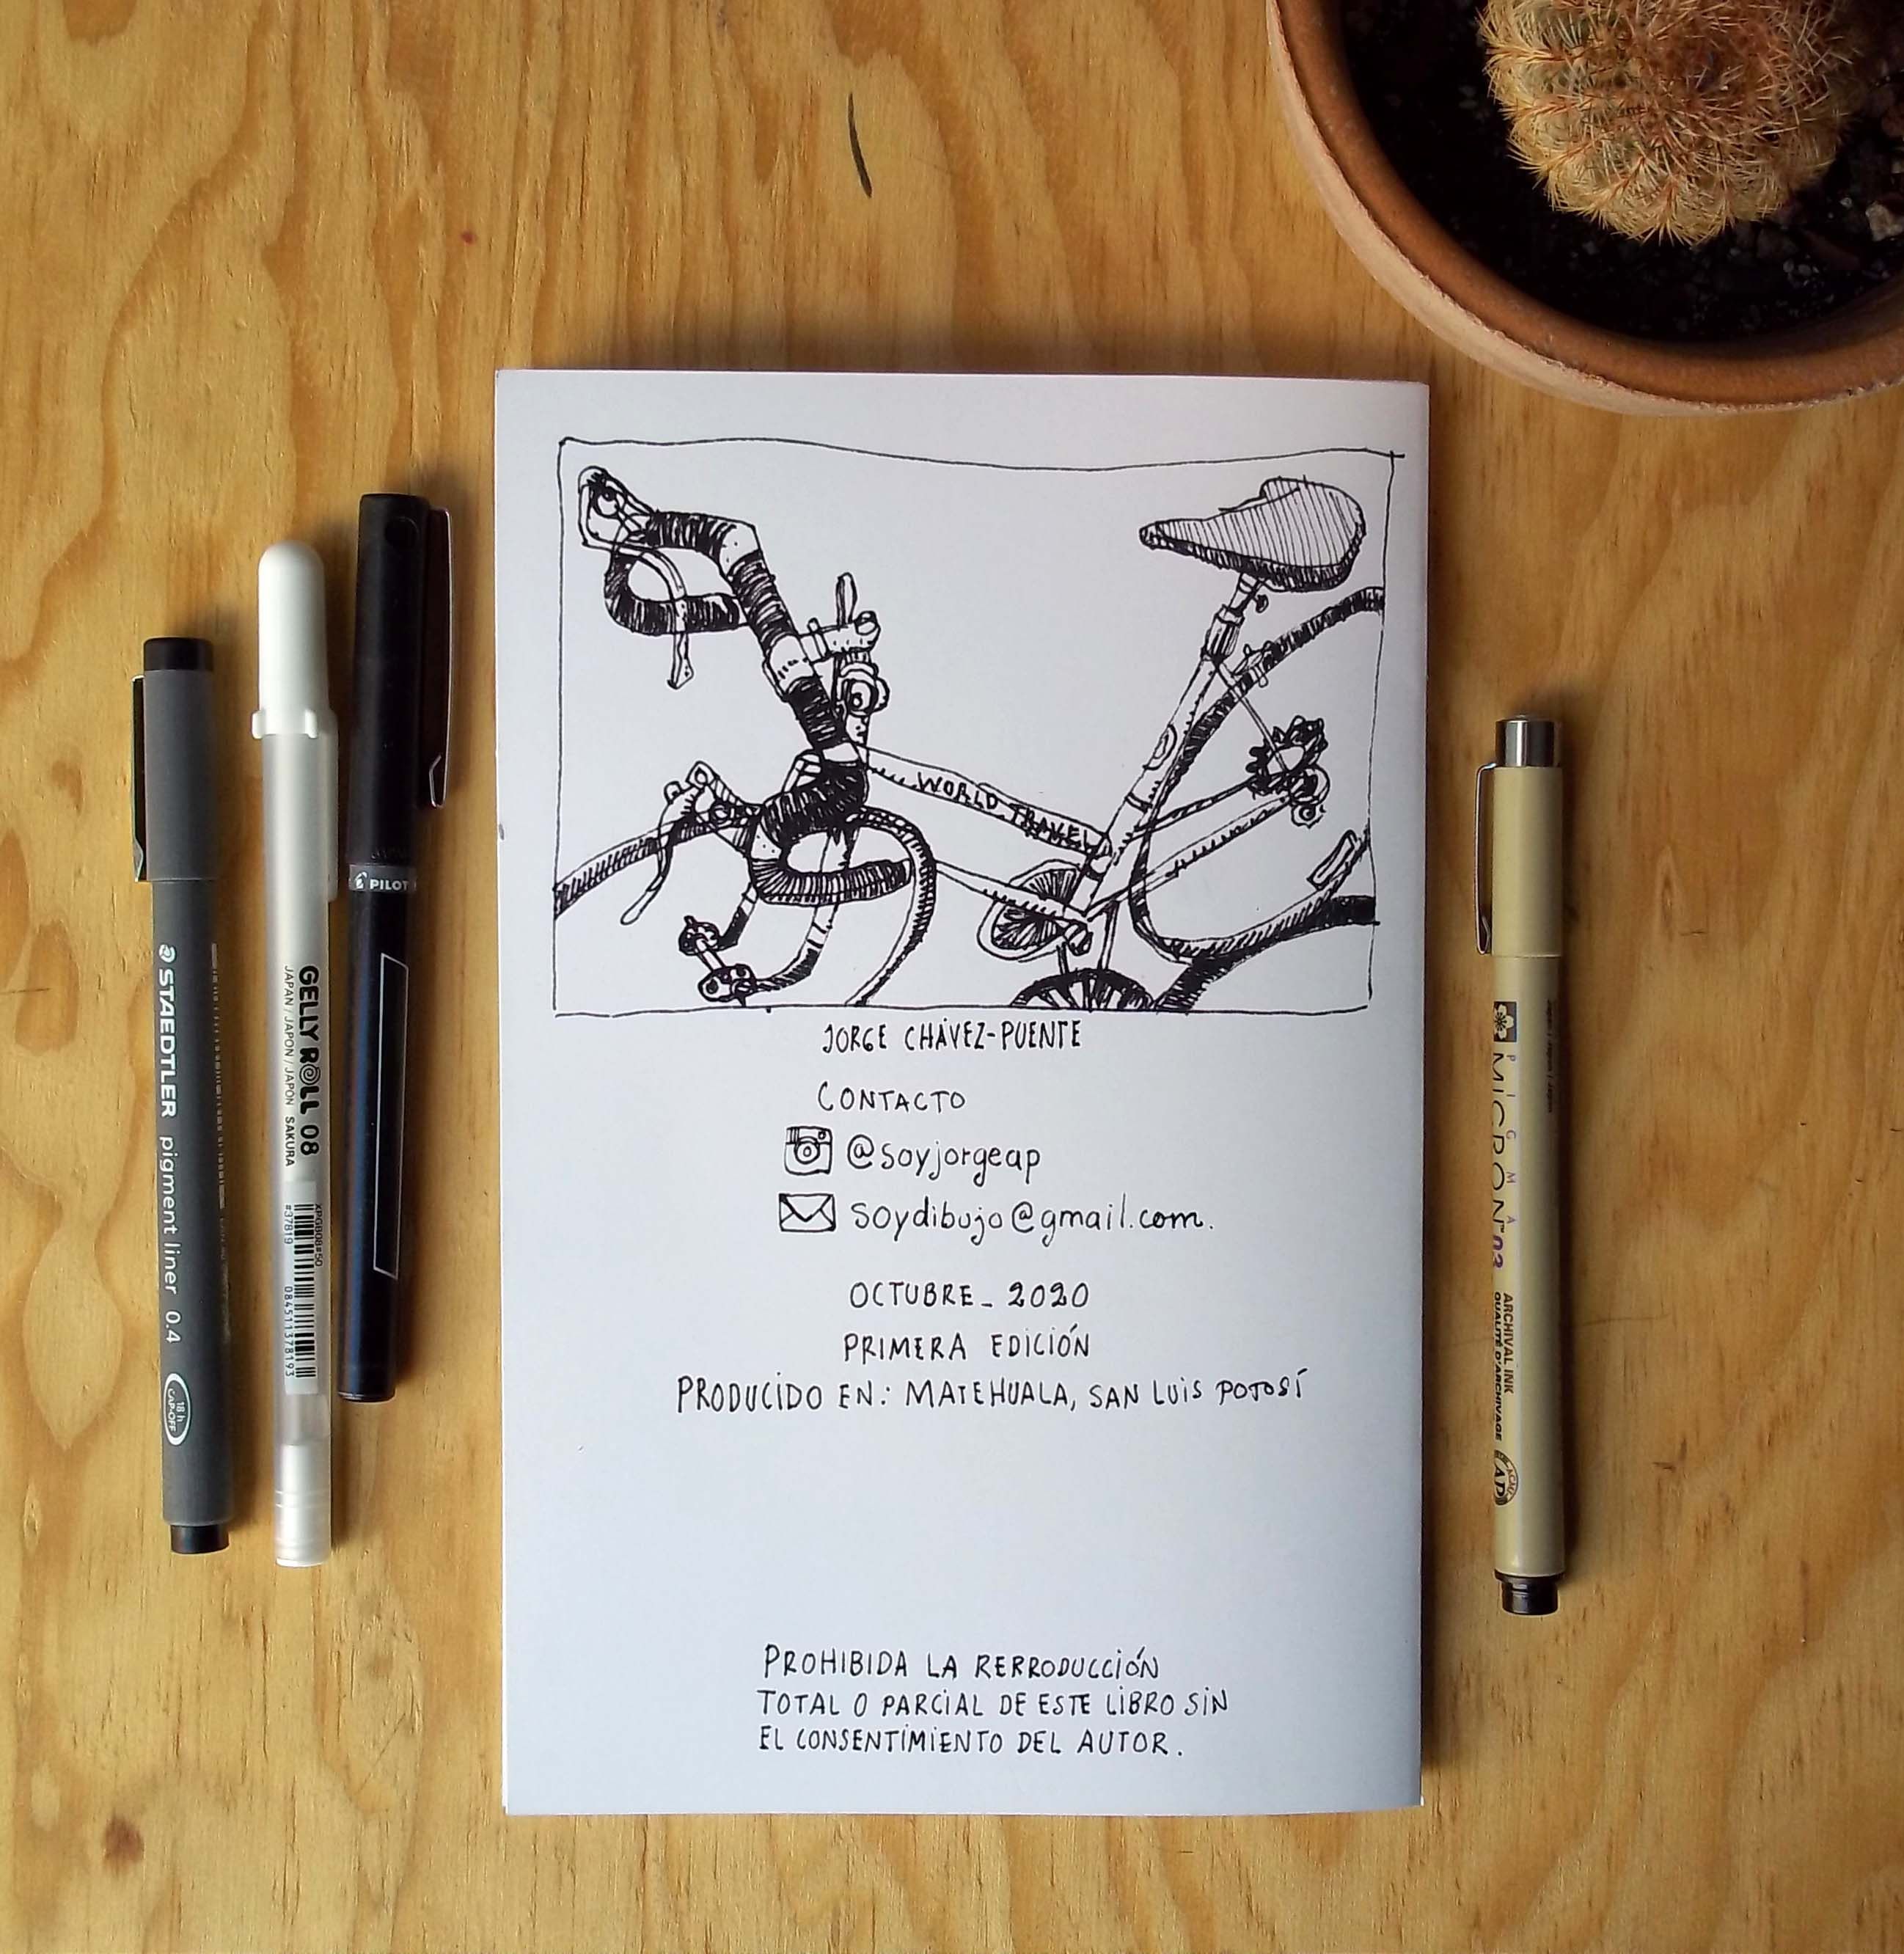 WORLD TRAVEL
JORGE CHÁVEZ-PUENTE
CONTACTO
@soyjorgeap
soydibujo@gmail.com.
OCTUBRE_ 2020
PRIMERA EDICIÓN
PRODUCIDO EN: MATEHUALA, SAN LUIS POTOSÍ
PROHIBIDA LA RERRODUCCIÓN
TOTAL O PARCIAL DE ESTE LIBRO SIN
EL CONSENTIMIENTO DEL AUTOR.
STAEDTLER pigment liner 0.4
18 h
CAP-OFF
GELLY ROLL 08
JAPAN / JAPON / JAPÓN SAKURA
XPGB08#50
#37819
084511378193
PILOT
PIGMA
MICRON 03
ARCHIVAL INK
QUALITÉ D'ARCHIVAGE
AP